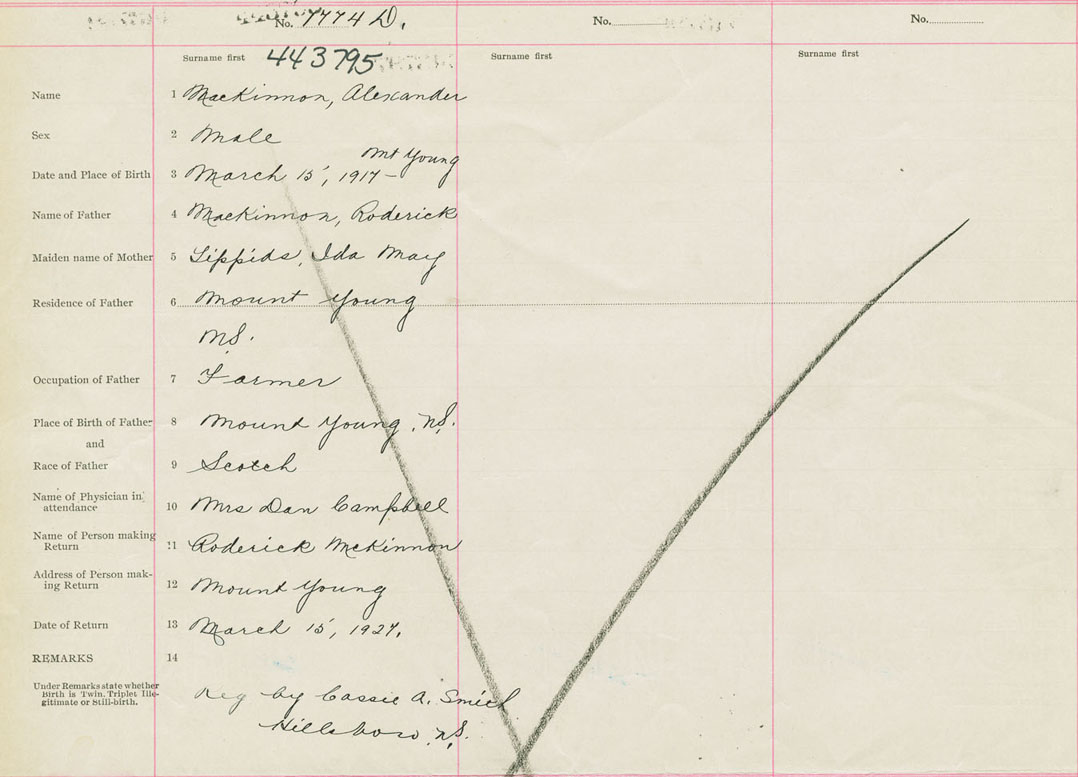 No. 7774 D.
No.
No.
Surname first 443795
Surname first
Surname first
Name 1 MacKinnon, Alexander
Sex 2 Male
Mt Young
Date and Place of Birth 3 March 15, 1917 –
Name of Father 4 MacKinnon, Roderick
Maiden name of Mother 5 Ida May
Residence of Father 6 Mount Young
NS.
Occupation of Father 7 Farmer
Place of Birth of Father 8 Mount Young, NS.
and
Race of Father 9 Scotch
Name of Physician in
attendance 10 Mrs Dan Campbell
Name of Person making
Return 11 Roderick McKinnon
Address of Person mak-
ing Return 12 Mount Young
Date of Return 13 March 15, 1927.
REMARKS 14
Under Remarks state whether
Birth is Twin, Triplet Ille-
gitimate or Still-birth.
Reg by Cassie A. Smith
Hillsboro, NS.